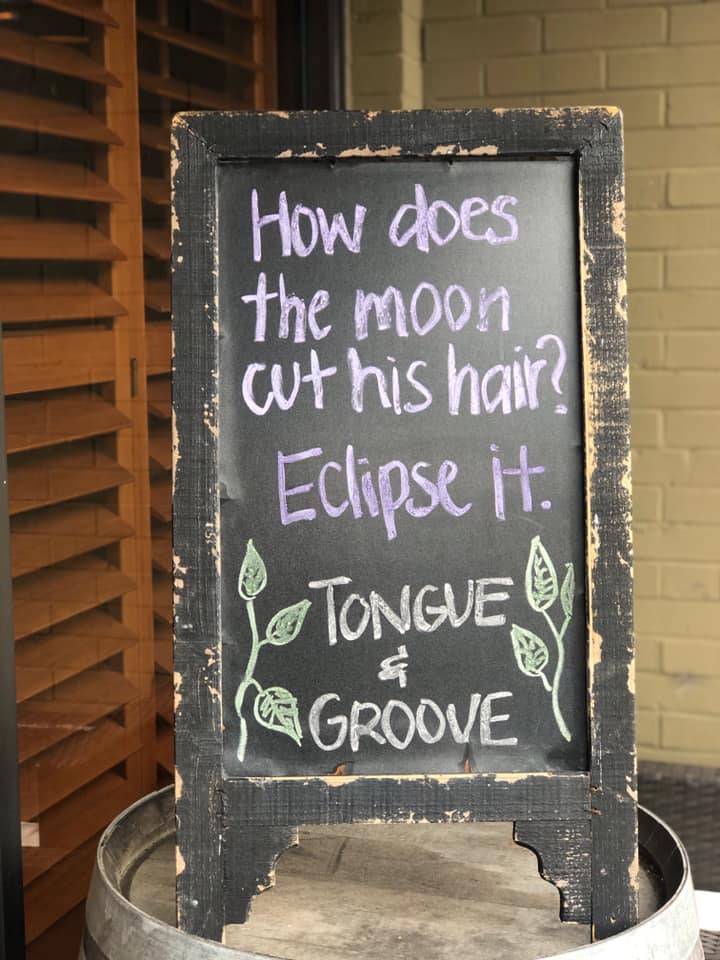 How does
the moon
cut his hair?
Eclipse it.
TONGUE
&
GROOVE